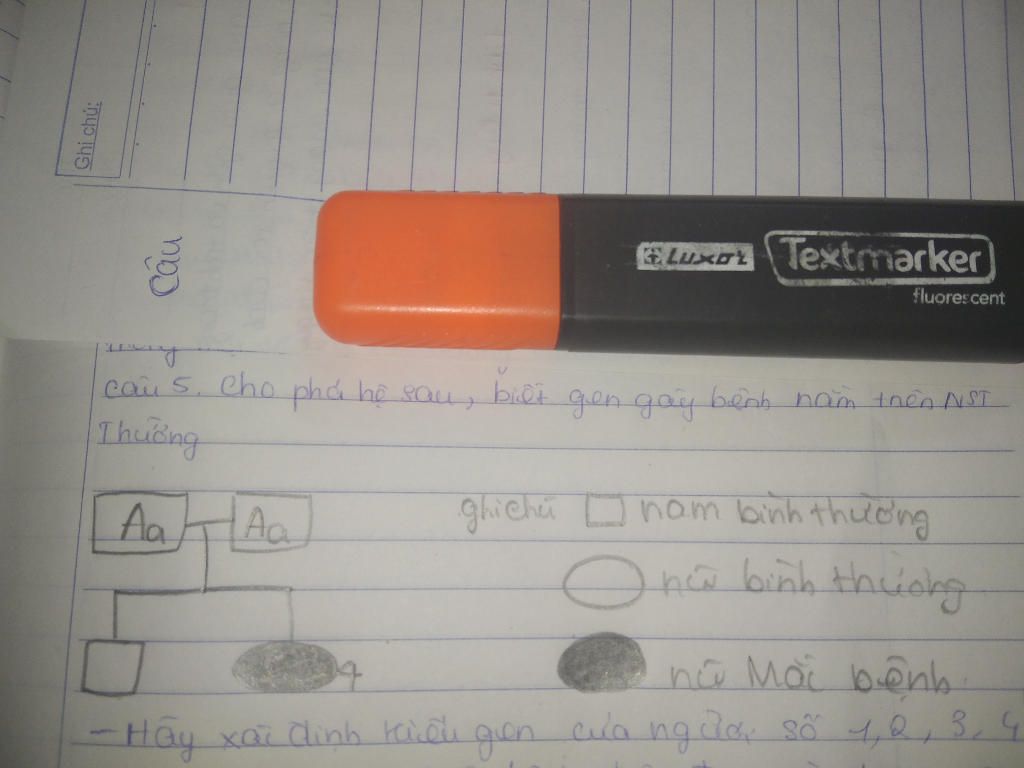 Ghi chú:
Câu
LUXOR Textmarker
fluorescent
câu 5. Cho phả hệ sau, biết gen gây bệnh nằm trên NST
Thường
Aa Aa ghi chú nam bình thường
nữ bình thường
4 nữ Mắc bệnh
- Hãy xác định kiểu gen của người số 1, 2, 3, 4